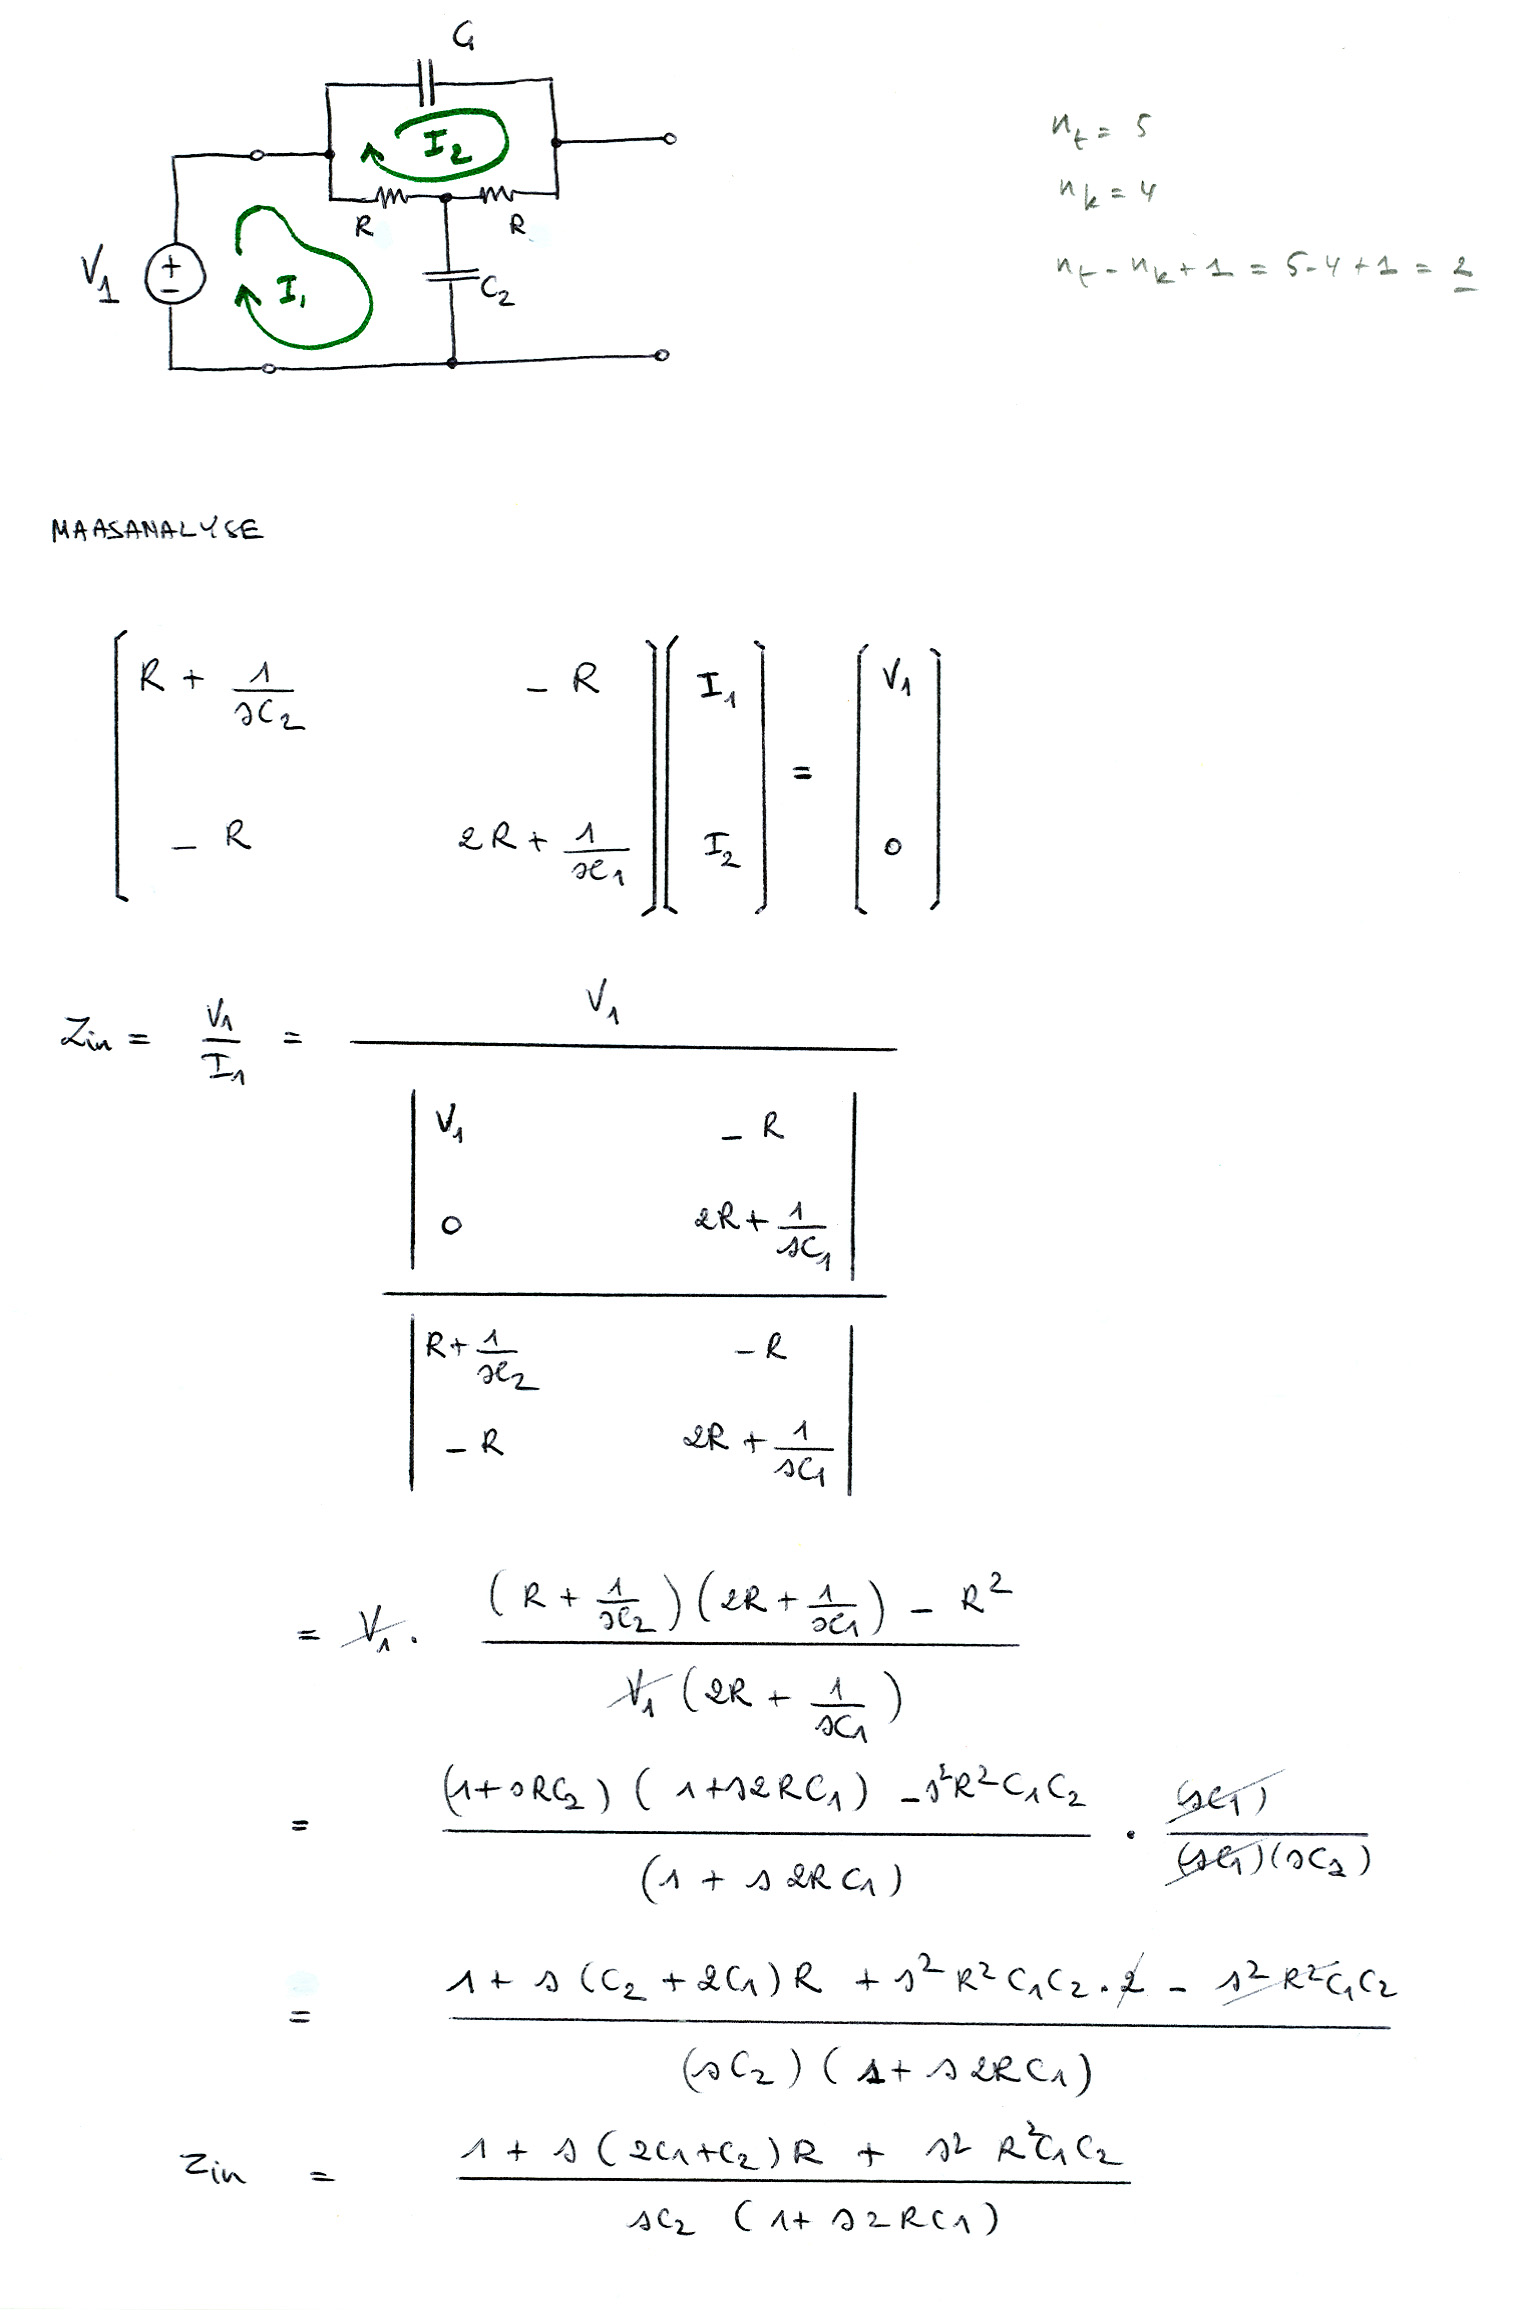 C₁
I₂
R R
V₁ + − I₁ C₂
n_t = 5
n_k = 4
n_t - n_k + 1 = 5-4+1 = 2
MAASANALYSE
[ R + 1/sC₂   - R ] [ I₁ ] = [ V₁ ]
[ - R   2R + 1/sC₁ ] [ I₂ ] [ 0 ]
Zin = V₁/I₁ = V₁
| V₁   - R |
| 0   2R + 1/sC₁ |
| R + 1/sC₂   - R |
| - R   2R + 1/sC₁ |
= V₁ . (R + 1/sC₂)(2R + 1/sC₁) - R² / V₁(2R + 1/sC₁)
= (1+sRC₂)(1+s2RC₁) - s²R²C₁C₂ / (1 + s2RC₁) . (sC₁) / (sC₁)(sC₂)
= 1 + s(C₂ + 2C₁)R + s²R²C₁C₂.2 - s²R²C₁C₂ / (sC₂)(1 + s2RC₁)
Zin = 1 + s(2C₁+C₂)R + s²R²C₁C₂ / sC₂(1+s2RC₁)